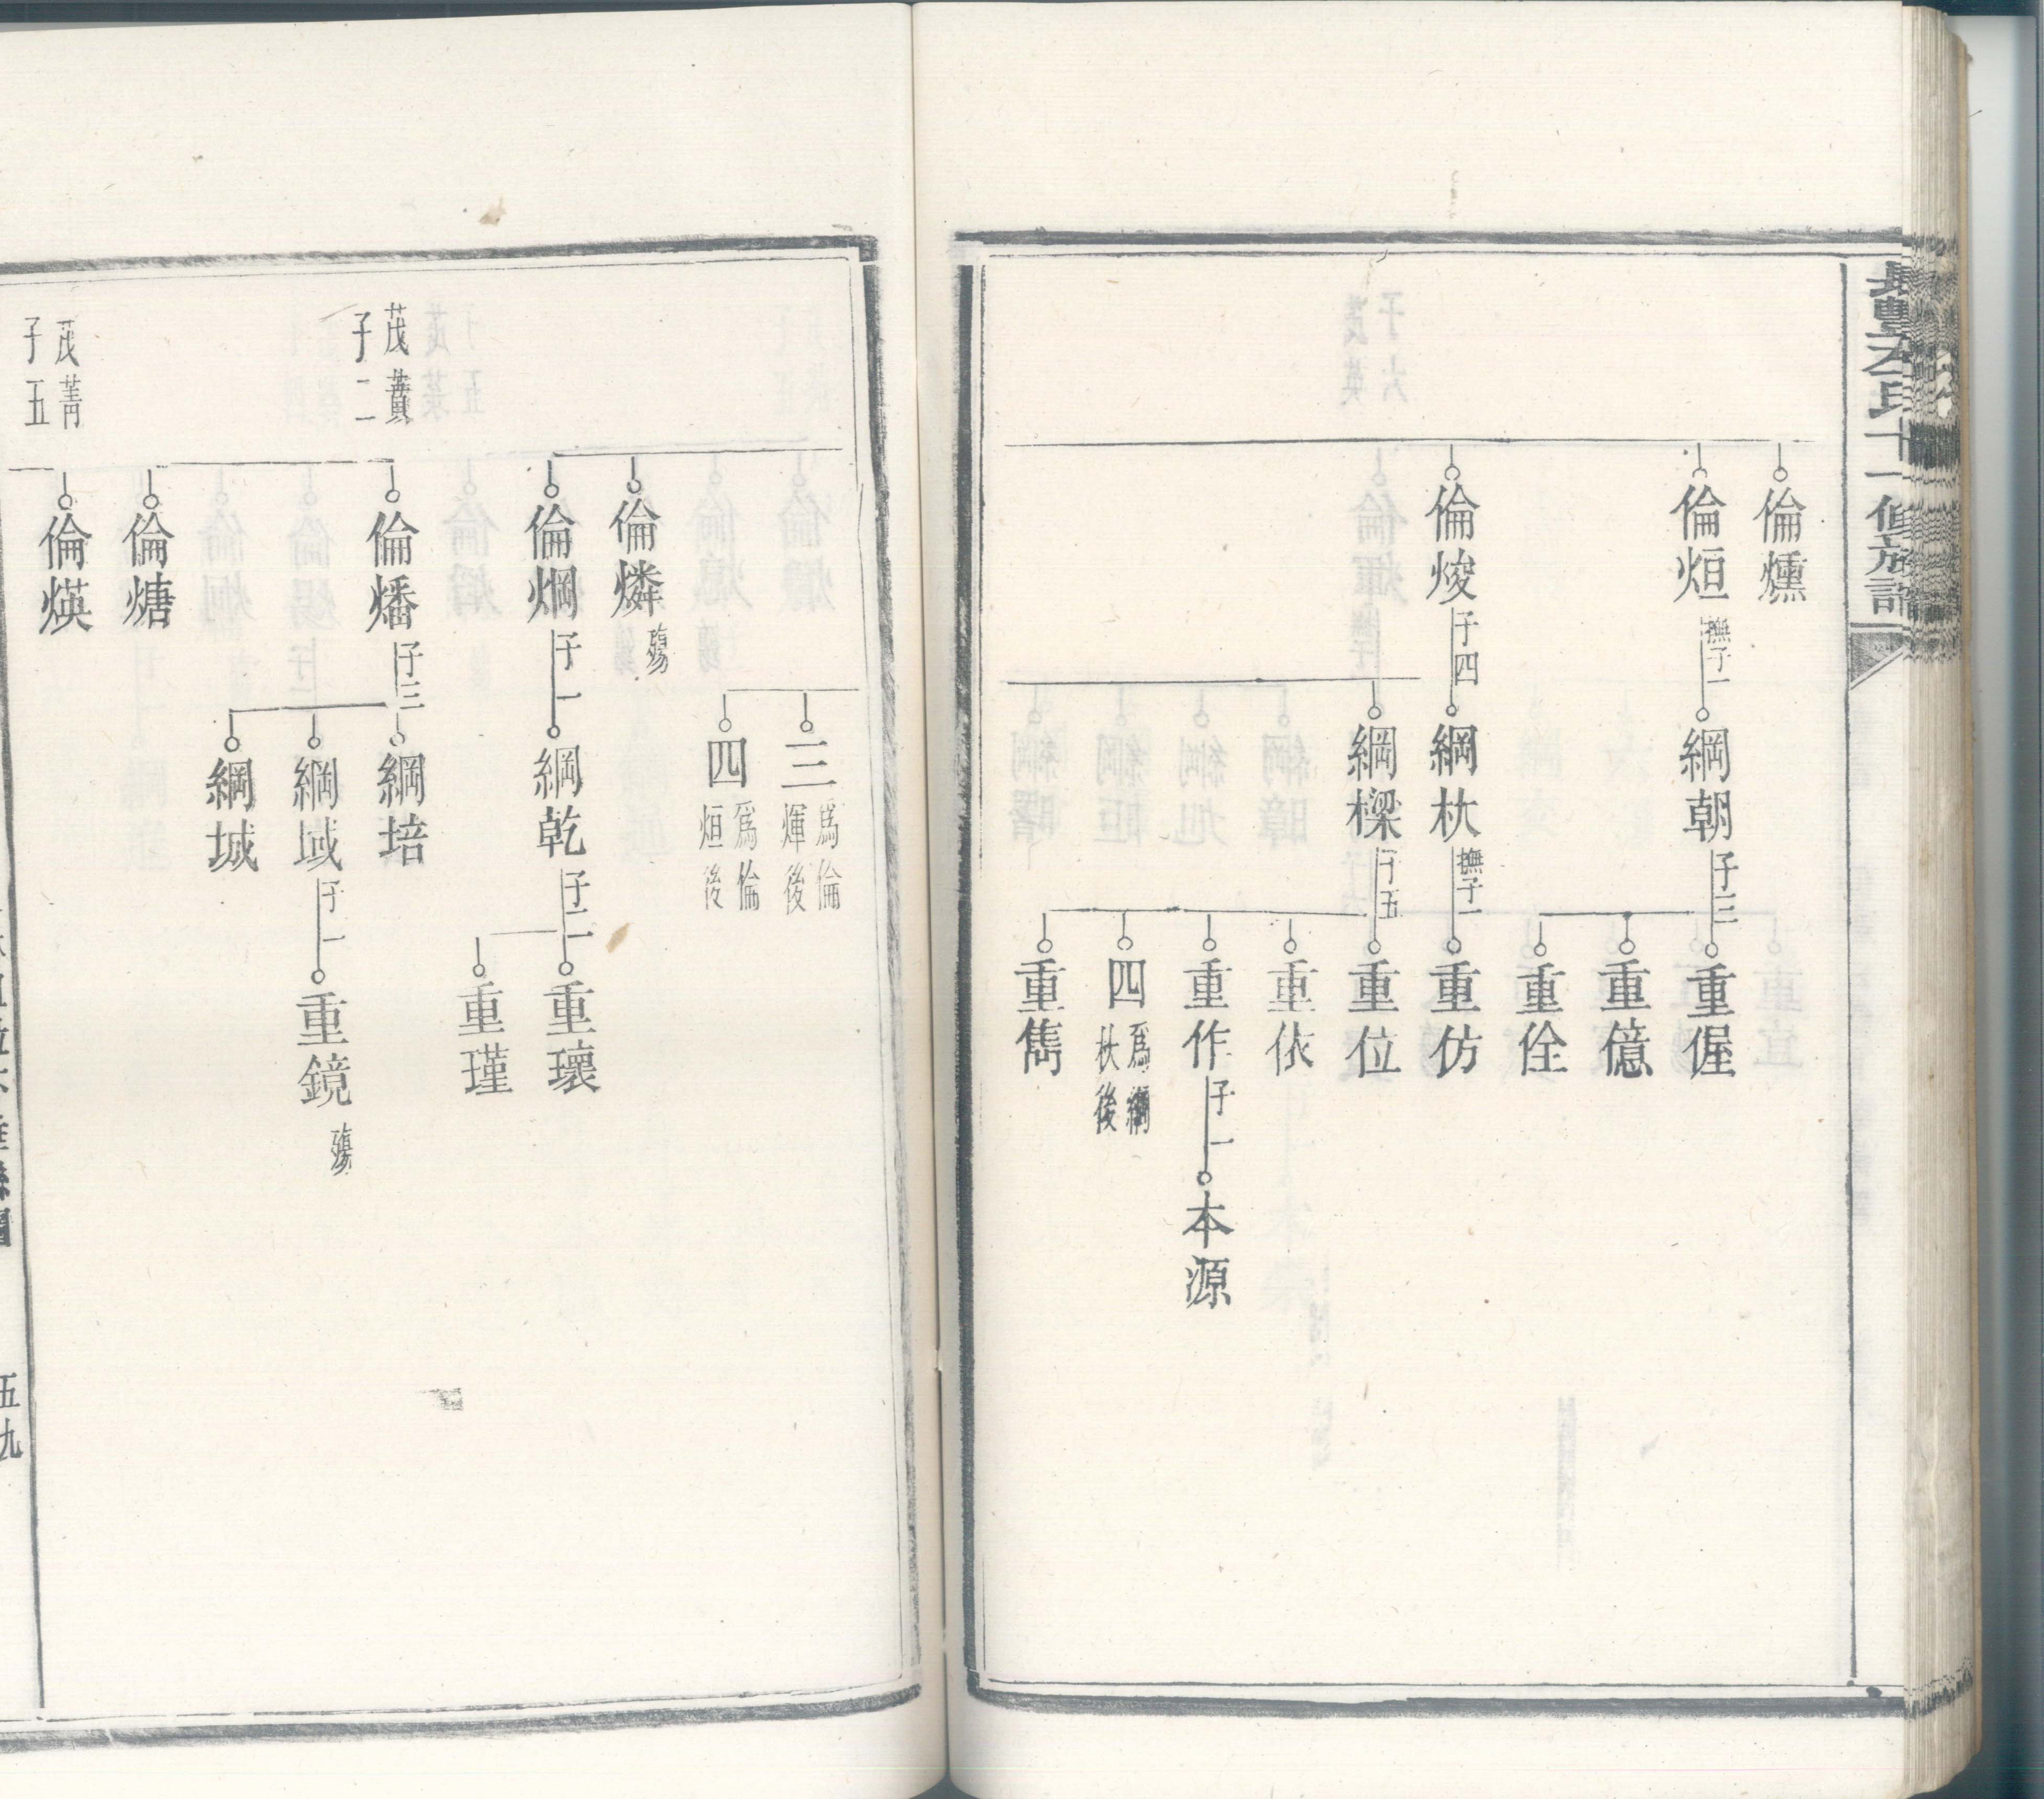 倫燻
倫烜
撫子一
綱朝
子三
重偓
重億
重佺
倫焌
子四
綱杕
撫子一
重仿
綱樑
子五
重位
重依
重作
子一
本源
四
為綱
杕後
重儁
三
為倫
煇後
四
為倫
烜後
倫燐
殤
倫焵
子一
綱乾
子二
重瓌
重瑾
茂蕡
子二
倫燔
子三
綱培
綱域
子一
重鏡
殤
綱城
倫煻
茂菁
子五
倫煐
五九